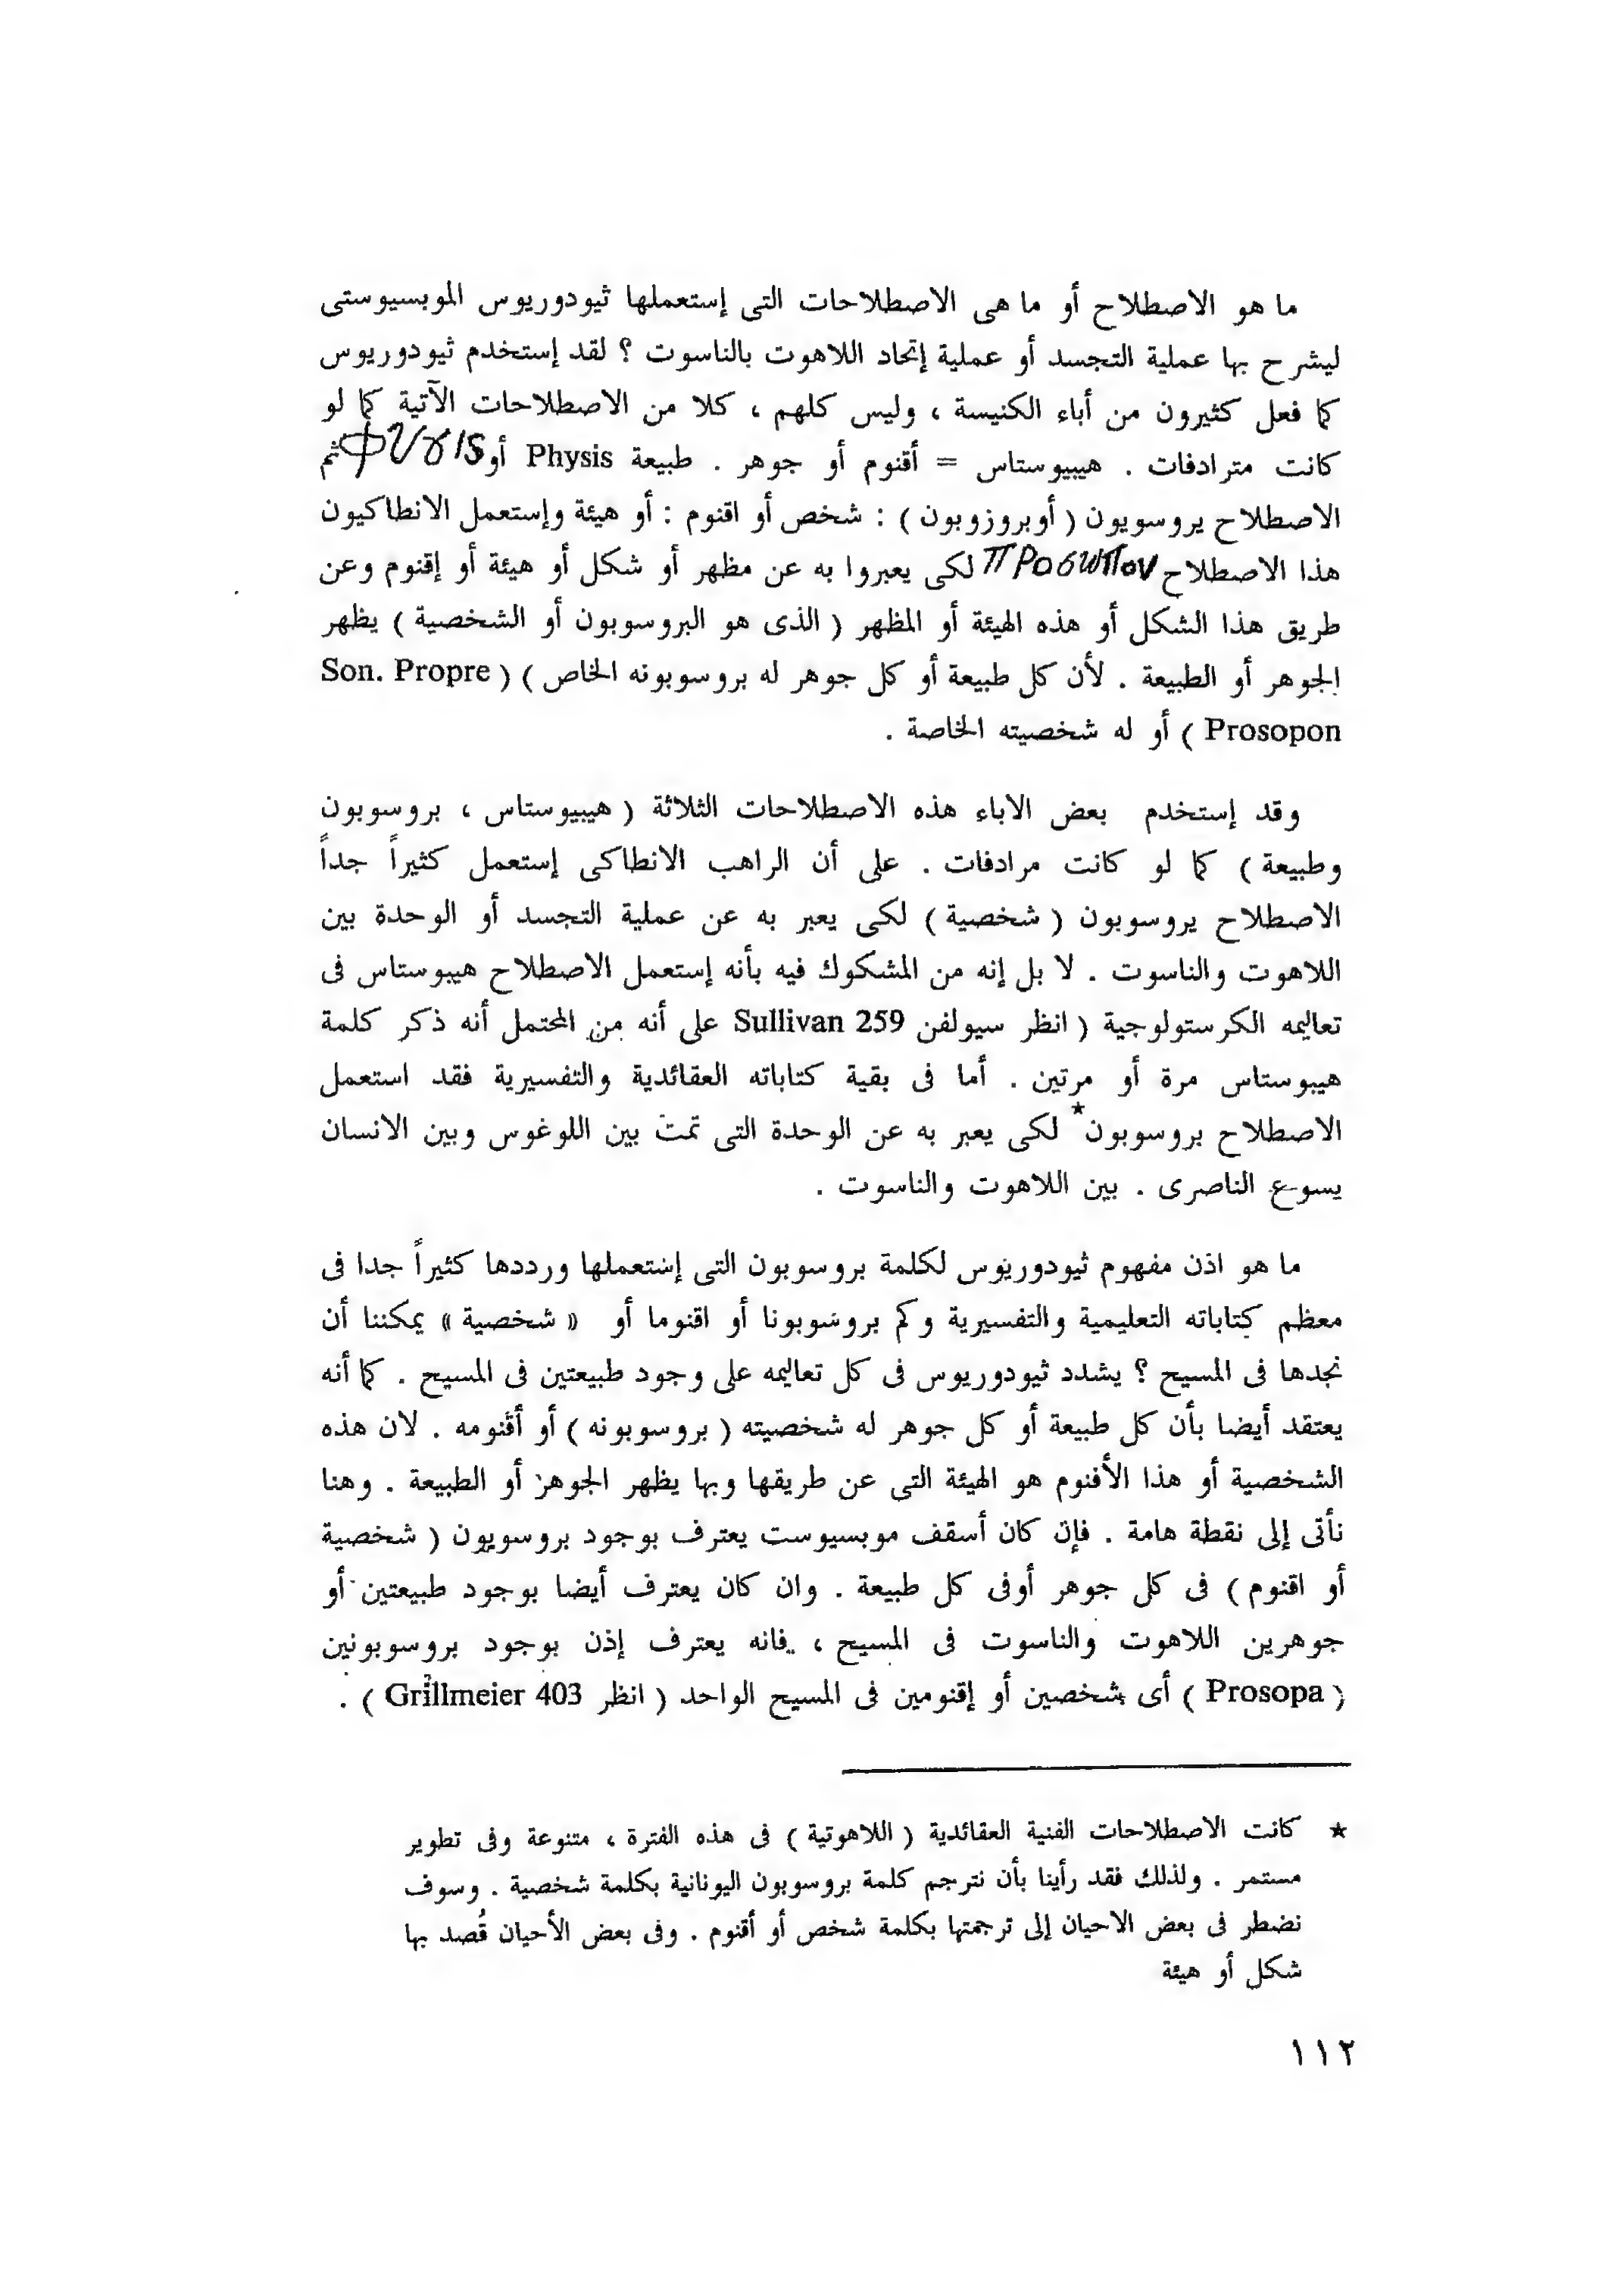 ما هو الاصطلاح أو ما هى الاصطلاحات التى إستعملها ثيودوريوس الموبسيوستى
ليشرح بها عملية التجسد أو عملية إتحاد اللاهوت بالناسوت ؟ لقد إستخدم ثيودوريوس
كما فعل كثيرون من أباء الكنيسة ، وليس كلهم ، كلا من الاصطلاحات الآتية كما لو
كانت مترادفات . هيبيوستاس = أقنوم أو جوهر . طبيعة Physis أو φυσις ثم
الاصطلاح يروسويون ( أوبروزوبون ) : شخص أو اقنوم : أو هيئة وإستعمل الانطاكيون
هذا الاصطلاح προσωπον لكى يعبروا به عن مظهر أو شكل أو هيئة أو إقنوم وعن
طريق هذا الشكل أو هذه الهيئة أو المظهر ( الذى هو البروسوبون أو الشخصية ) يظهر
الجوهر أو الطبيعة . لأن كل طبيعة أو كل جوهر له بروسوبونه الخاص ) ( Son. Propre
Prosopon ) أو له شخصيته الخاصة .
وقد إستخدم بعض الاباء هذه الاصطلاحات الثلاثة ( هيبيوستاس ، بروسوبون
وطبيعة ) كما لو كانت مرادفات . على أن الراهب الانطاكى إستعمل كثيراً جداً
الاصطلاح يروسوبون ( شخصية ) لكى يعبر به عن عملية التجسد أو الوحدة بين
اللاهوت والناسوت . لا بل إنه من المشكوك فيه بأنه إستعمل الاصطلاح هيبوستاس فى
تعاليمه الكرستولوجية ( انظر سيولفن Sullivan 259 على أنه من المحتمل أنه ذكر كلمة
هيبوستاس مرة أو مرتين . أما فى بقية كتاباته العقائدية والتفسيرية فقد استعمل
الاصطلاح بروسوبون* لكى يعبر به عن الوحدة التى تمت بين اللوغوس وبين الانسان
يسوع الناصرى . بين اللاهوت والناسوت .
ما هو اذن مفهوم ثيودوريوس لكلمة بروسوبون التى إستعملها ورددها كثيراً جدا فى
معظم كتاباته التعليمية والتفسيرية وكم بروسوبونا أو اقنوما أو « شخصية » يمكننا أن
نجدها فى المسيح ؟ يشدد ثيودوريوس فى كل تعاليمه على وجود طبيعتين فى المسيح . كما أنه
يعتقد أيضا بأن كل طبيعة أو كل جوهر له شخصيته ( بروسوبونه ) أو أقنومه . لان هذه
الشخصية أو هذا الأقنوم هو الهيئة التى عن طريقها وبها يظهر الجوهر أو الطبيعة . وهنا
نأتى إلى نقطة هامة . فإن كان أسقف موبسيوست يعترف بوجود بروسويون ( شخصية
أو اقنوم ) فى كل جوهر أوفى كل طبيعة . وان كان يعترف أيضا بوجود طبيعتين أو
جوهرين اللاهوت والناسوت فى المسيح ، فانه يعترف إذن بوجود بروسوبونين
( Prosopa ) أى شخصين أو إقنومين فى المسيح الواحد ( انظر Grillmeier 403 ) .
★ كانت الاصطلاحات الفنية العقائدية ( اللاهوتية ) فى هذه الفترة ، متنوعة وفى تطوير
مستمر . ولذلك فقد رأينا بأن نترجم كلمة بروسوبون اليونانية بكلمة شخصية . وسوف
نضطر فى بعض الاحيان إلى ترجمتها بكلمة شخص أو أقنوم . وفى بعض الأحيان قُصد بها
شكل أو هيئة
١١٢